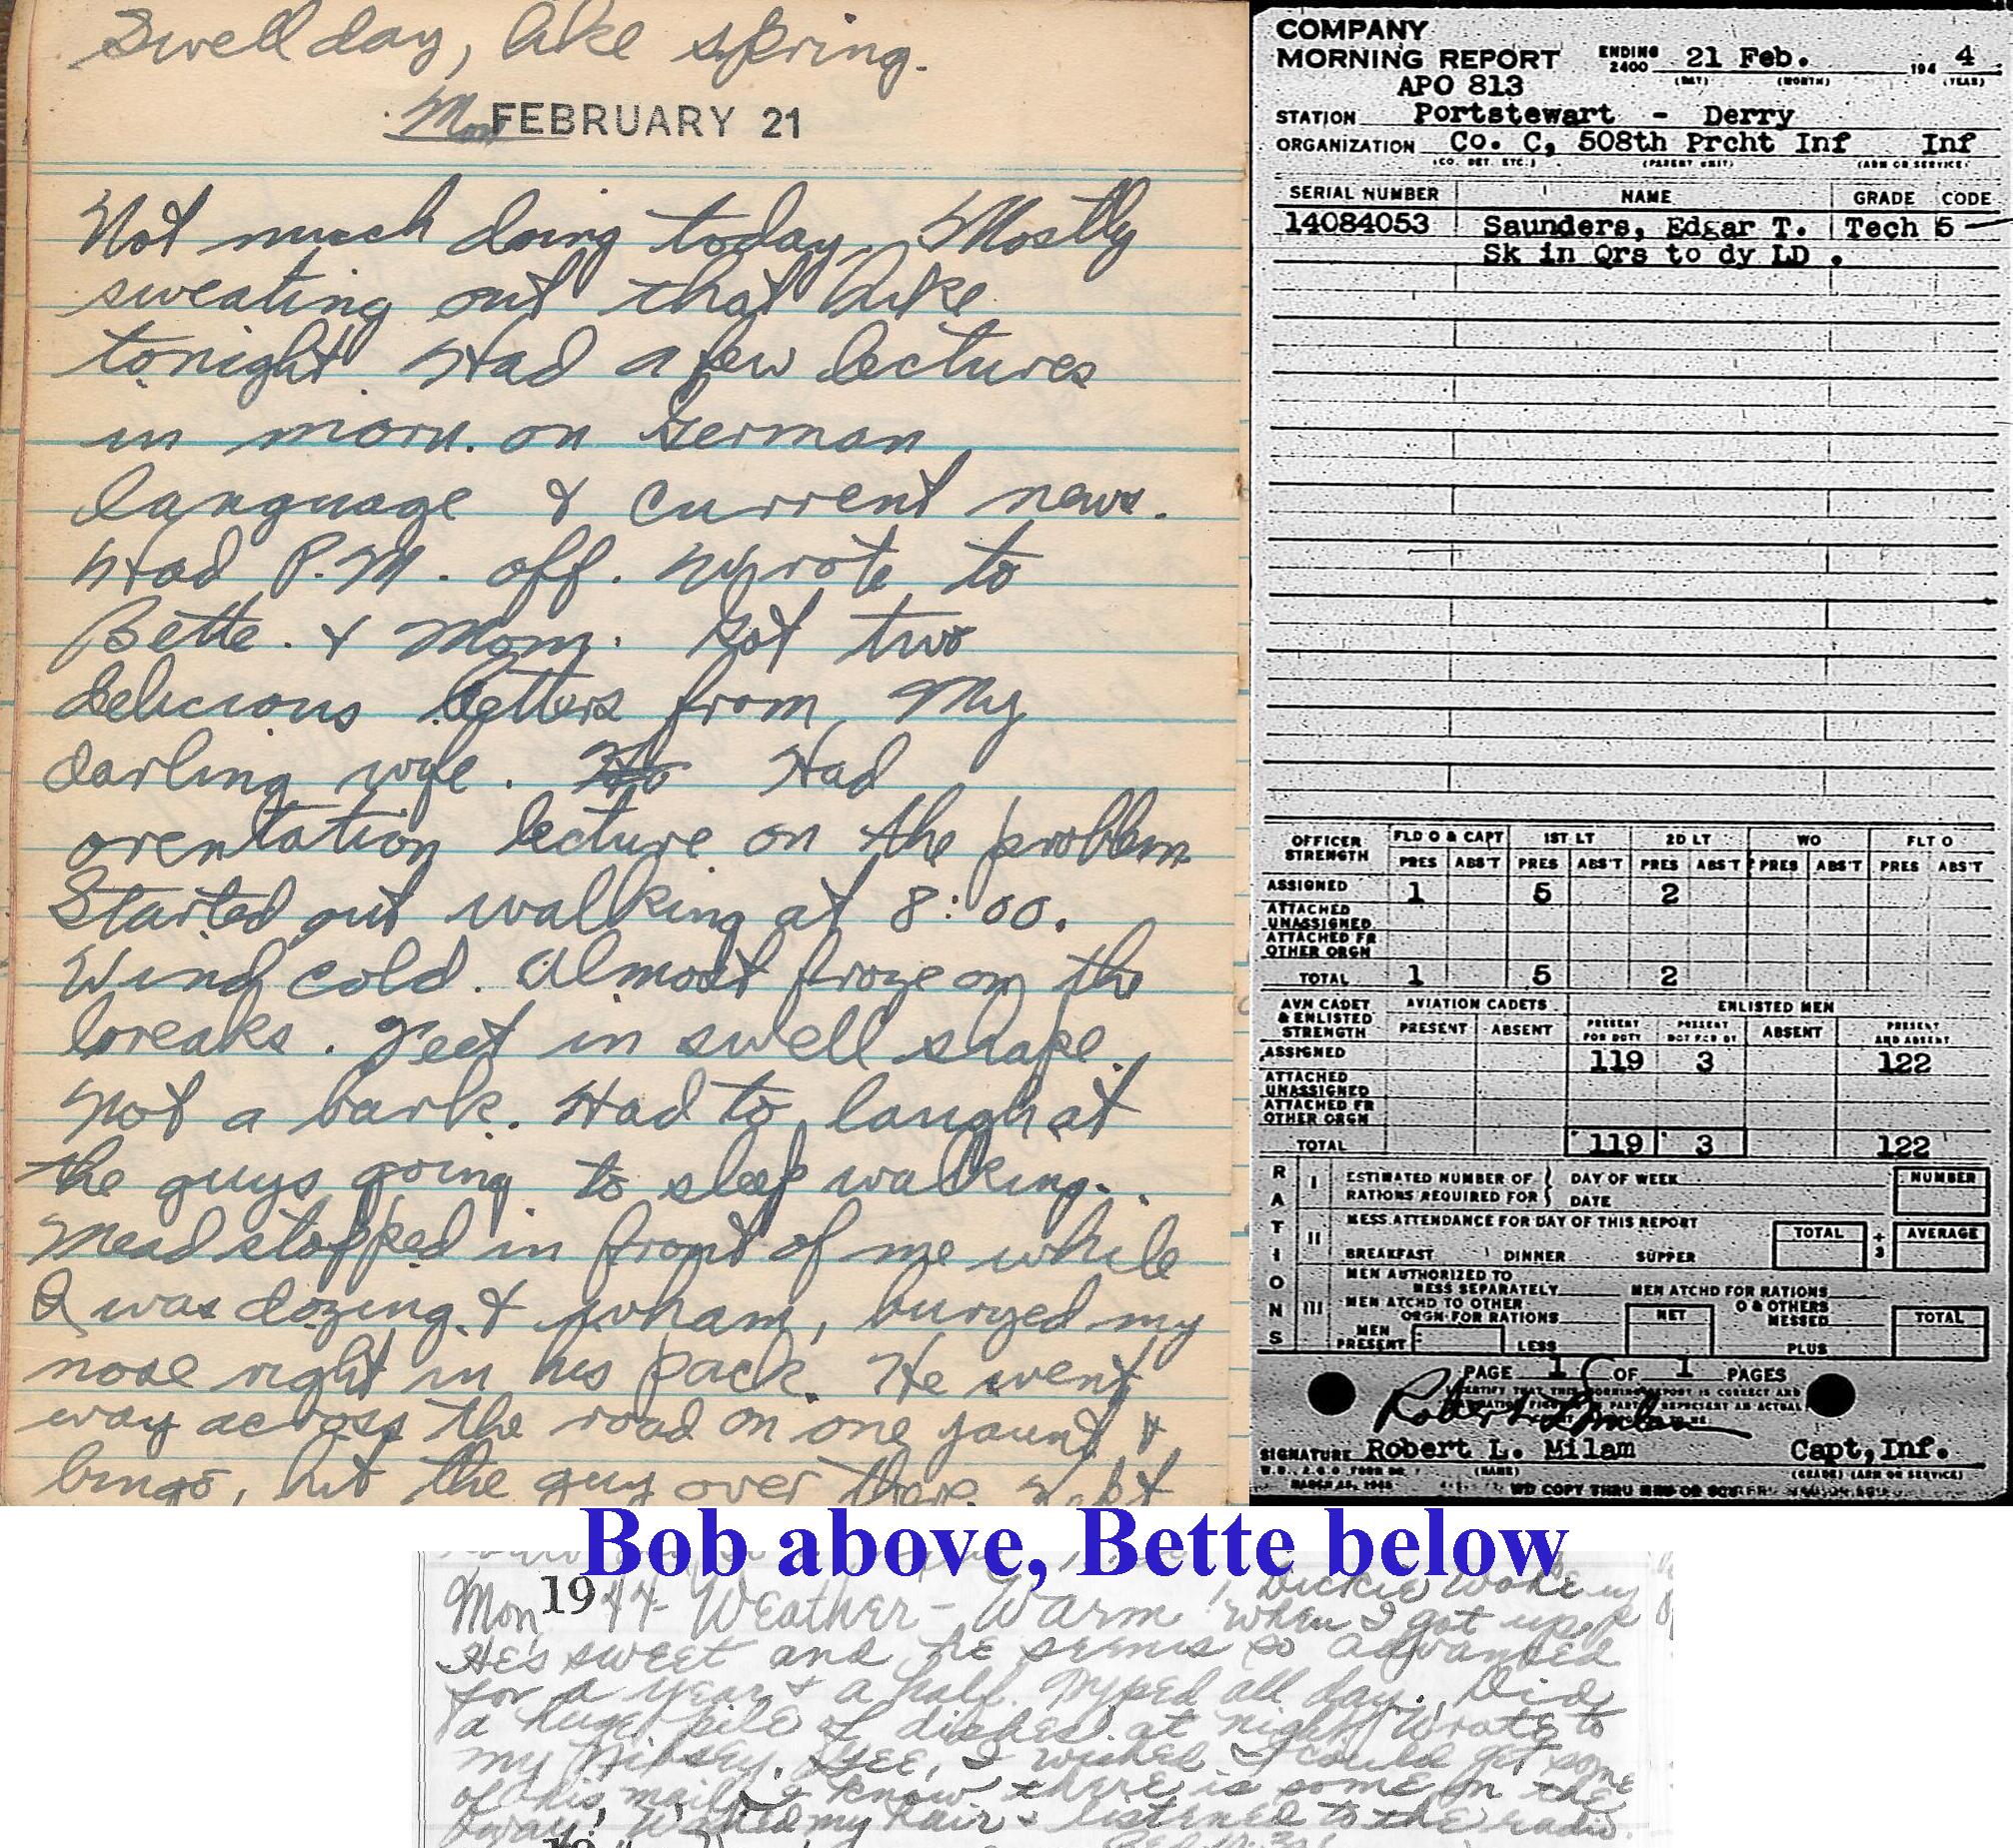 Swell day, like spring.
Mon FEBRUARY 21
Not much doing today. Mostly
sweating out that hike
tonight. Had a few lectures
in morn. on German
language & current news.
Had P.M. off. Wrote to
Bette. & Mom. Got two
delicious letters from My
darling wife. Had
orentation lecture on the problem
Started out walking at 8:00.
Wind cold. Almost froze on the
breaks. Feet in swell shape.
Not a bark. Had to laugh at
the guys going to sleep walking.
Mead stopped in front of me while
I was dozing & wham, buryed my
nose right in his pack. He went
way across the road on one jaunt &
bingo, hit the guy over there.
COMPANY
MORNING REPORT ENDING 2400 21 Feb. 194 4
(DAY) (MONTH) (YEAR)
APO 813
STATION Portstewart - Derry
ORGANIZATION Co. C, 508th Prcht Inf Inf
(CO. DET. ETC.) (PARENT UNIT) (ARM OR SERVICE)
SERIAL NUMBER NAME GRADE CODE
14084053 Saunders, Edgar T. Tech 5
Sk in Qrs to dy LD .
OFFICER STRENGTH FLD O & CAPT 1ST LT 2D LT WO FLT O
PRES ABS'T PRES ABS'T PRES ABS'T PRES ABS'T PRES ABS'T
ASSIGNED 1 5 2
ATTACHED UNASSIGNED
ATTACHED FR OTHER ORGN
TOTAL 1 5 2
AVN CADET & ENLISTED STRENGTH AVIATION CADETS ENLISTED MEN
PRESENT ABSENT PRESENT FOR DUTY PRESENT NOT FOR DY ABSENT PRESENT AND ABSENT
ASSIGNED 119 3 122
ATTACHED UNASSIGNED
ATTACHED FR OTHER ORGN
TOTAL 119 3 122
RATIONS
I ESTIMATED NUMBER OF RATIONS REQUIRED FOR DAY OF WEEK DATE NUMBER
II MESS ATTENDANCE FOR DAY OF THIS REPORT TOTAL ÷ 3 AVERAGE
BREAKFAST DINNER SUPPER
III MEN AUTHORIZED TO MESS SEPARATELY MEN ATCHD FOR RATIONS
MEN ATCHD TO OTHER ORGN FOR RATIONS NET O & OTHERS MESSED TOTAL
MEN PRESENT LESS PLUS
PAGE 1 OF 1 PAGES
CERTIFY THAT THIS MORNING REPORT IS CORRECT AND
Robert L Milam
SIGNATURE Robert L. Milam Capt, Inf.
(NAME) (GRADE) (ARM OR SERVICE)
WD COPY THRU
Bob above, Bette below
Mon 1944- Weather - Warm! Dickie woke up
when I got up.
He's sweet and he seems so advanced
for a year & a half. Typed all day. Did
a huge pile of dishes at night. Wrote to
my. Gee, I wished I could get some
of his mail. I know there is some on the
way! Washed my hair & listened to the radio.